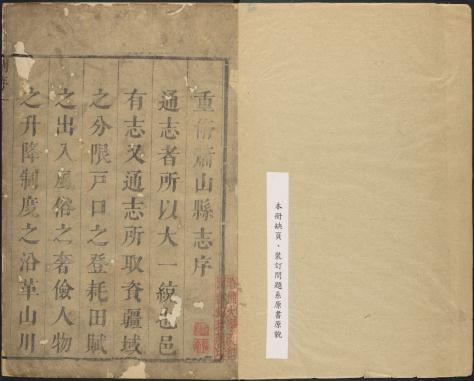 本冊缺頁、裝訂問題系原書原貌
重脩蕭山縣志序
通志者所以大一統也邑
有志又通志所取資疆域
之分限戶口之登耗田賦
之出入風俗之奢儉人物
之升降制度之沿革山川